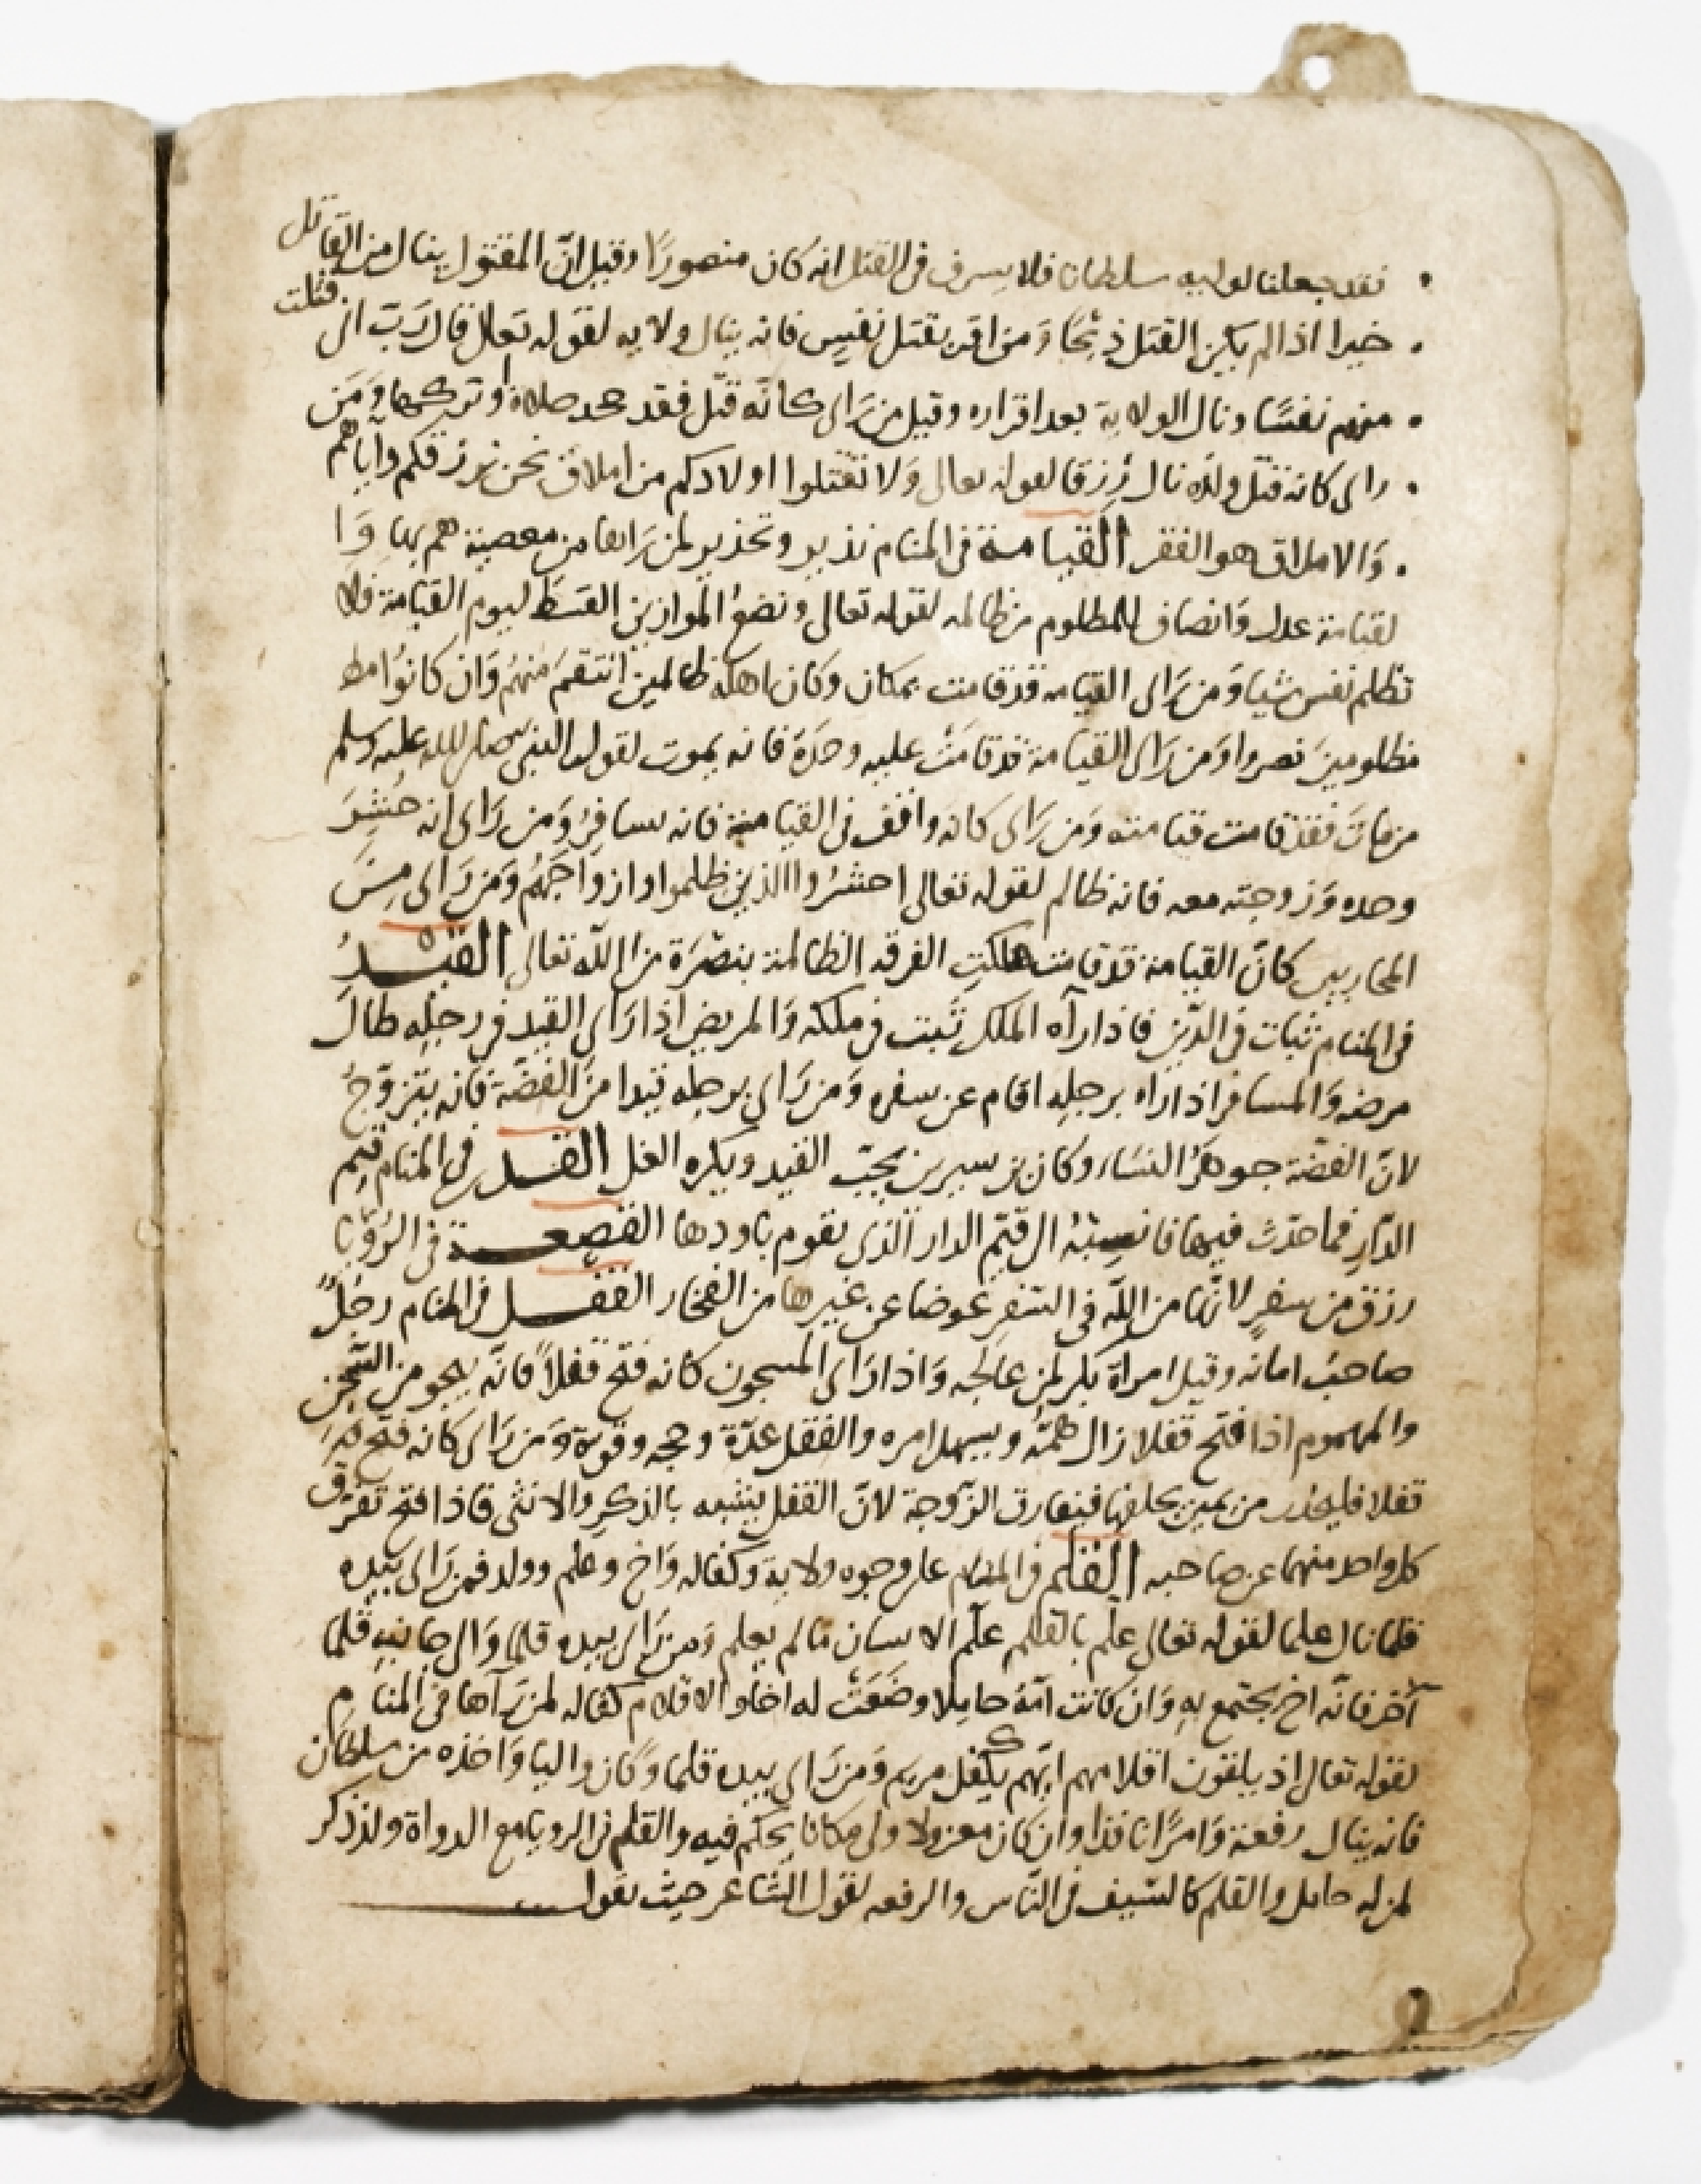 فقد جعلنا لوليه سلطانا فلا يسرف في القتل انه كان منصورًا وقيل انّ المقتول ينال من القاتل
خيرا اذا لم يكن القتل ذبحًا وَمن اقر بقتل نفسٍ فانه ينال ولايه لقوله تعالى قال رَبّ انى قتلت
منهم نفسًا ونال الولاية بعد اقراره وقيل من رَاى كانّه قتل فقد جحد صلاة او تركها وَمَن
راى كانه قتل ولدَه نال رِزقا لقوله تعالى وَلا تقتلوا اولادكم من املاق نحن نرزقكم واياهم
وَالاملاق هو الفقر القيامة فى المنام نذير وتحذير لمن رَاها من معصية هم بها وَا
لقيامة عدل وَانصاف للمظلوم من ظالمه لقوله تعالى ونضعُ الموازين القسط ليوم القيامة فلا
تظلم نفس شيا وَمن رَاى القيامه قد قامت بمكان وكان اهله ظالمين انتقمَ منهُم وَان كانوُا مظ
مظلومينَ نصروا وَمن رَاى القيامة قد قامَتْ عليه وحدَهَ فانه يموت لقول النبى صلى الله عليه وسلم
من ماتَ فقد قامت قيامته وَمن رَاى كانه واقف فى القيامة فانه يسافرُ وَمن رَاى انه حُشِرَ
وحده وَزوجته معه فانه ظالم لقوله تعالى احشرُوا الذين ظلموا وازوَاجَهُم وَمَن رَاى مِنَ
المحاربين كانَّ القيامة قد قامت هلكتِ الفرقه الظالمة بنصْرَة من الله تعالى القيدُ
فى المنام ثبات فى الدّين فاذا رآه الملك ثَبت فى ملكه وَالمريض اذا رَاى القيد فى رجلِهِ طالَ
مرضه وَالمسافر اذا رآه برجلِه اقام عن سفره وَمن رَاى برجلِه قيدا منَ الفضّة فانه يتزوّجُ
لانّ الفضّة جوهَرُ النسَاء وكان بن سيرين يحبّ القيد ويكره الغل القدر فى المنام قيّم
الدّارِ فما حدّث فيها فانسبْهُ الى قيّم الدار الّذى يقوم باودها القصعة فى الرُؤيا
رزق من سفرٍ لانّها من الله فى السّفر عوضا عن غيرها من الفخار القفل فى المنام رجلٌ
صاحبُ امانه وقيل امراة بكر لمن عالجه وَاذا رَاى المسجون كانه فتح قفلاً فانّه ينجو من السّجن
والمهموم اذا فتح قفلا زال همّهُ ويسهل امره والقفل عدّة وحجه وقوة وَمن رَاى كانه فتح
قفلا فليحذر من يمين يحلفها فيفارق الزّوجة لانّ القفل يشبه بالذكرِ والانثى فاذا افتح تفرّق
كل واحد منهما عن صاحبه القلم فى المنام على وجوه ولاية وكفاله وَاخ وعلم وولد فمن رَاى بيده
قلما نال علما لقوله تعالى علّم بالقلم علّم الانسان مالم يعلم وَمن رَاى بيده قلمًا وَالى جانبِه قلما
آخر فانّه اخ يجتمع بِه وَان كانت امّهُ حاملا وضَعَتْ له اخا والاقلام كفاله لمن رَآها فى المنامِ
لقوله تعالى اذ يلقون اقلامهم ايّهم يكفل مريم وَمن رَاى بيده قلما وَكان واليا وَاخذه من سلطان
فانه ينال رفعة وَامرًا نافذا وان كان معزولا ولى مكانا يحكم فيه والقلم فى الرويا مع الدواة ولد ذكر
لمن له حامل والقلم كالسّيف فى النّاس والرفعه لقول الشّاعر حيث يقول